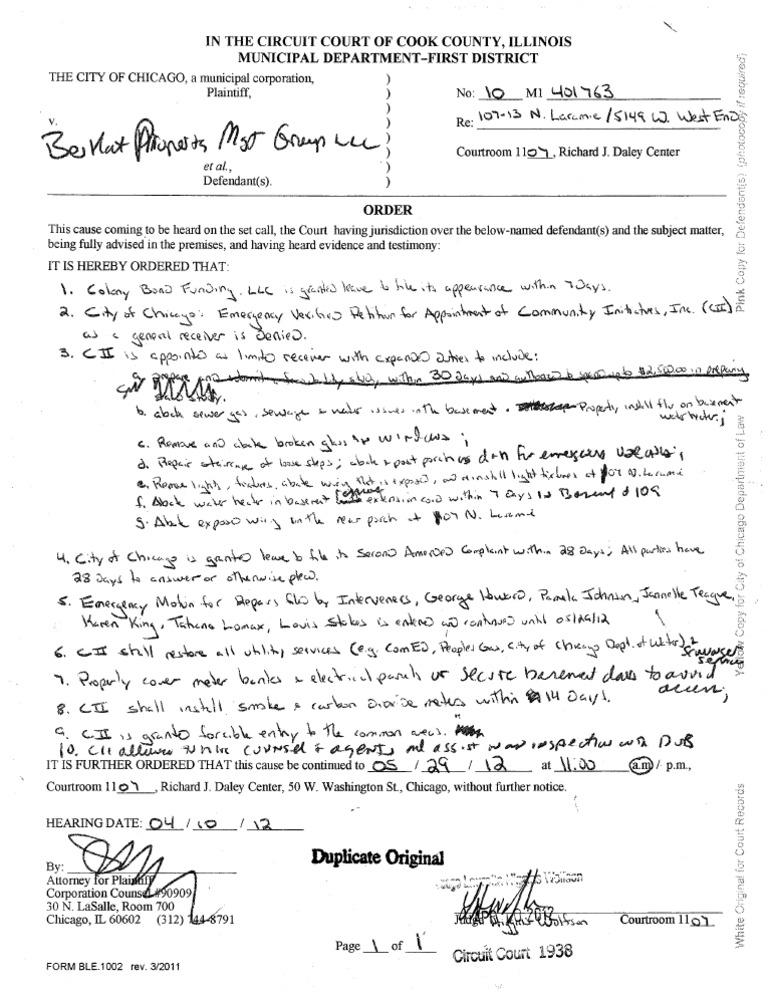 IN THE CIRCUIT COURT OF COOK COUNTY, ILLINOIS
MUNICIPAL DEPARTMENT–FIRST DISTRICT
THE CITY OF CHICAGO, a municipal corporation, )
Plaintiff, ) No: 10 M1 401763
v. ) Re: 107-13 N. Laramie / 5149 W. West End
Properts Mgt Group LLC )
et al., ) Courtroom 1107, Richard J. Daley Center
Defendant(s). )
ORDER
This cause coming to be heard on the set call, the Court having jurisdiction over the below-named defendant(s) and the subject matter,
being fully advised in the premises, and having heard evidence and testimony:
IT IS HEREBY ORDERED THAT:
1. Colony Bond Funding, LLC is granted leave to file its appearance within 7 days.
2. City of Chicago's Emergency Verified Petition for Appointment of Community Initiatives, Inc. (CII)
as a general receiver is denied.
3. CII is appointed as limited receiver with expanded duties to include:
within 30 days and
b. abate sewer gas, sewage & water issues in the basement. Properly install flu on basement
water heater;
c. Remove and abate broken glass windows;
d. Repair staircase of loose steps; abate & post porch as d+h for emergency use only;
e. Remove lights, fixtures, abate wiring that is exposed, and reinstall light fixtures at 107 N. Laramie
f. Abate water heater in basement remove extension cord within 7 days in Basement @ 109
g. Abate exposed wiring on the rear porch at 107 N. Laramie
4. City of Chicago is granted leave to file its Second Amended Complaint within 28 days; All parties have
28 days to answer or otherwise plead.
5. Emergency Motion for Repairs filed by Interveners, George Howard, Pamela Johnson, Jannelle Teague,
Karen King, Tahana Lomax, Louis Stokes is entered and continued until 05/29/12
6. CII shall restore all utility services (e.g. ComEd, Peoples Gas, City of Chicago Dept. of Water) &
sewage service
7. Properly cover meter banks & electrical panels or secure basement doors to avoid
access;
8. CII shall install smoke & carbon dioxide meters within 14 days.
9. CII is granted forcible entry to the common areas.
10. CII allowed to hire counsel & agents and assist w/ inspection with DOB
IT IS FURTHER ORDERED THAT this cause be continued to 05 / 29 / 12 at 11:00 a.m / p.m.,
Courtroom 1107, Richard J. Daley Center, 50 W. Washington St., Chicago, without further notice.
HEARING DATE: 04 / 10 / 12
By:
Attorney for Plaintiff
Corporation Counsel #90909
30 N. LaSalle, Room 700
Chicago, IL 60602 (312) 744-8791
Duplicate Original
Judge Wolfson Courtroom 1107
Page 1 of 1
Circuit Court 1938
FORM BLE.1002 rev. 3/2011
White Original for Court Records Yellow Copy for City of Chicago Department of Law Pink Copy for Defendant(s) (photocopy if required)